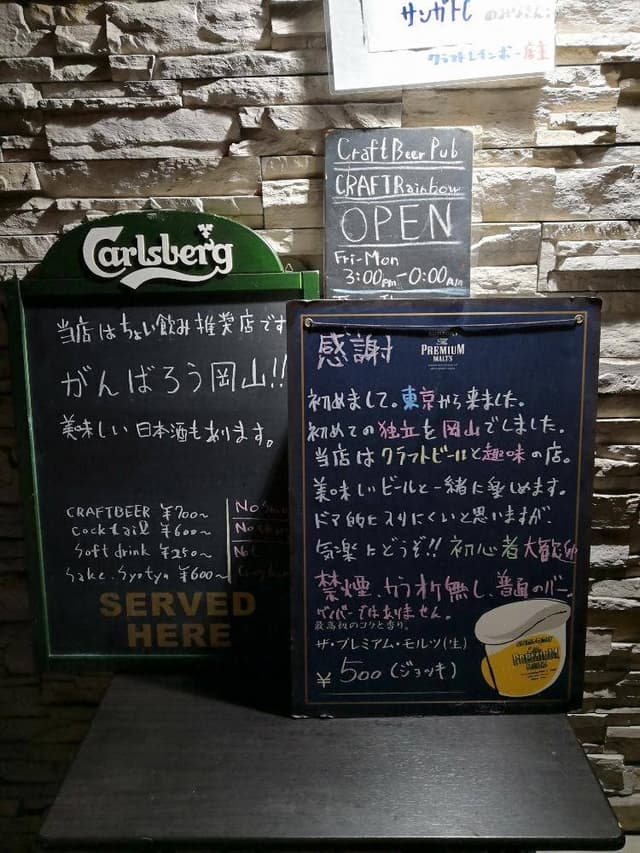 サンガトC のみなさん！
クラフトレインボー店主
Craft Beer Pub
CRAFT Rainbow
OPEN
Fri-Mon
3:00pm-0:00am
Carlsberg
当店はちょい飲み推奨店です
がんばろう岡山!!
美味しい日本酒もあります。
CRAFTBEER ¥700~
Cocktail ¥600~
Soft drink ¥250~
Sake. Syotyu ¥600~
No
No
No
SERVED
HERE
感謝
THE
PREMIUM
MALT'S
初めまして。東京から来ました。
初めての独立を岡山でしました。
当店はクラフトビールと趣味の店。
美味しいビールと一緒に楽しめます。
ドア的に入りにくいと思いますが、
気楽にどうぞ!! 初心者大歓迎
禁煙、カラオケ無し、普通のバー。
ゲイバーではありません。
最高級のコクと香り。
ザ・プレミアム・モルツ(生)
¥500(ジョッキ)
The PREMIUM
MALT'S